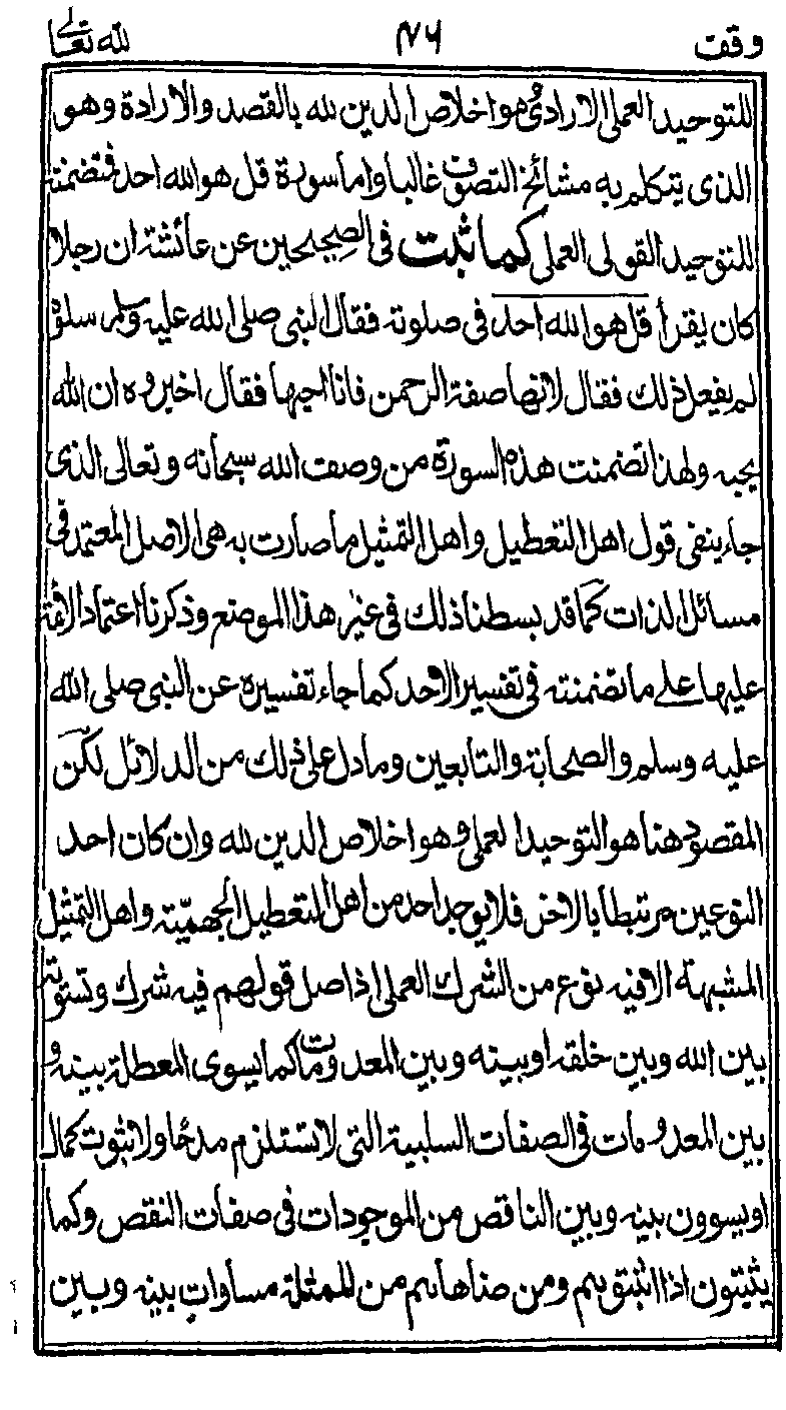 وقف ٧٦ لله تعالى
للتوحيد العملى الارادى هو اخلاص الدين لله بالقصد والارادة وهو
الذى يتكلم به مشائخ التصوف غالبا واما سورة قل هو الله احد فتضمنته
للتوحيد القولى العملى كما ثبت فى الصحيحين عن عائشة ان رجلا
كان يقرأ قل هو الله احد فى صلوته فقال النبى صلى الله عليه وسلم سلوه
لم يفعل ذلك فقال لانها صفة الرحمن فانا احبها فقال اخبروه ان الله
يحبه ولهذا تضمنت هذه السورة من وصف الله سبحانه وتعالى الذى
جاء ينفى قول اهل التعطيل واهل التمثيل ما صارت به هى الاصل المعتمد فى
مسائل الذات كما قد بسطنا ذلك فى غير هذا الموضع وذكرنا اعتماد الائمة
عليها على ما تضمنته فى تفسير الاحد كما جاء تفسيره عن النبى صلى الله
عليه وسلم والصحابة والتابعين وما دل على ذلك من الدلائل لكن
المقصود هنا هو التوحيد العملى وهو اخلاص الدين لله وان كان احد
النوعين مرتبطا بالاخر فلا يوجد احد من اهل التعطيل الجهمية واهل التمثيل
المشبهة الا فيه نوع من الشرك العملى اذ اصل قولهم فيه شرك وتسوية
بين الله وبين خلقه او بينه وبين المعدومات كما يسوى المعطلة بينه و
بين المعدومات فى الصفات السلبية التى لا تستلزم مدحا ولا ثبوت كمال
او يسوون بينه وبين الناقص من الموجودات فى صفات النقص وكما
يثبتون اذا اثبتو هم ومن ضاهاهم من الممثلة مساوات بينه وبين